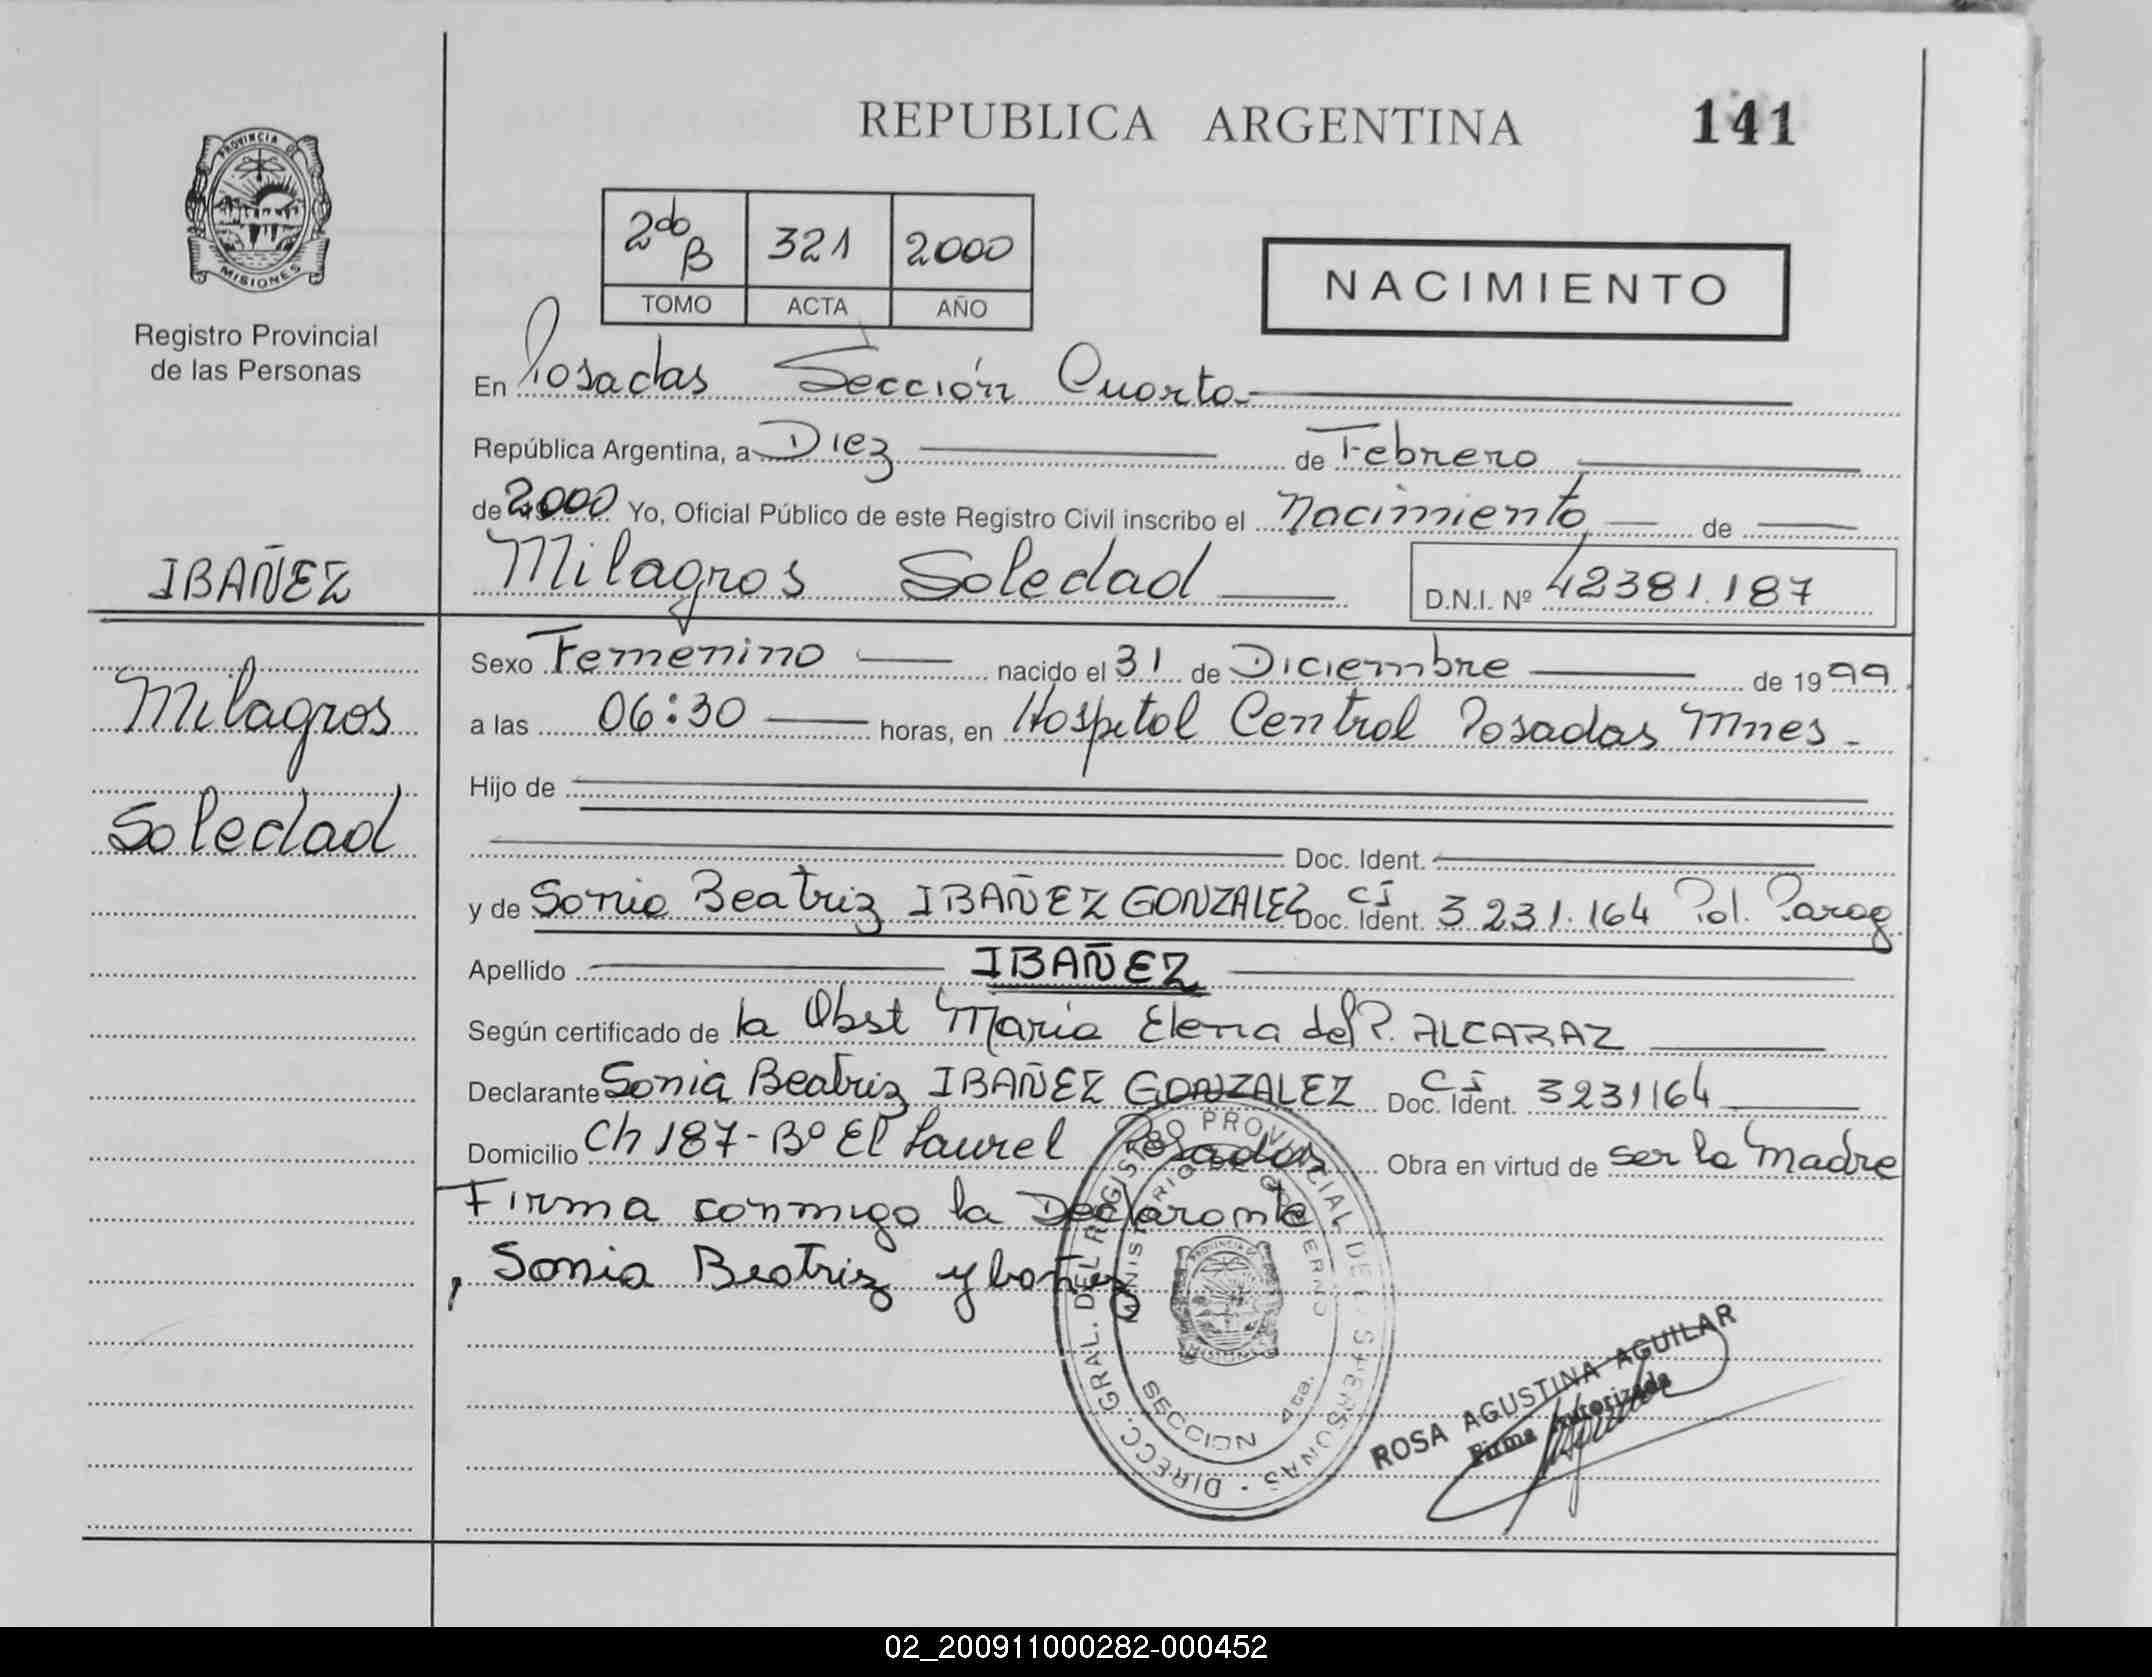 REPUBLICA ARGENTINA
141
PROVINCIA DE
MISIONES
Registro Provincial
de las Personas
2do B 321 2000
TOMO ACTA AÑO
NACIMIENTO
En Posadas Sección Cuarta
República Argentina, a Diez de Febrero
de 2000 Yo, Oficial Público de este Registro Civil inscribo el Nacimiento de
Milagros Soledad D.N.I. Nº 42381.187
IBAÑEZ
Milagros
Soledad
Sexo Femenino nacido el 31 de Diciembre de 1999
a las 06:30 horas, en Hospital Central Posadas Mnes.
Hijo de
Doc. Ident.
y de Sonia Beatriz IBAÑEZ GONZALEZ Doc. Ident. CI 3231.164 Pol. Parag
Apellido IBAÑEZ
Según certificado de la Obst Maria Elena del P. ALCARAZ
Declarante Sonia Beatriz IBAÑEZ GONZALEZ Doc. Ident. CI 3231164
Domicilio Ch 187-Bº El Laurel Posadas Obra en virtud de ser la madre
Firma conmigo la Declarante
Sonia Beatriz ybañez
DIRECC. GRAL. DEL REGISTRO PROVINCIAL DE LAS PERSONAS
MINISTERIO DE GOBIERNO
PROVINCIA DE
MISIONES
SECCION 4ta.
ROSA AGUSTINA AGUILAR
Firma Autorizada
02_200911000282-000452